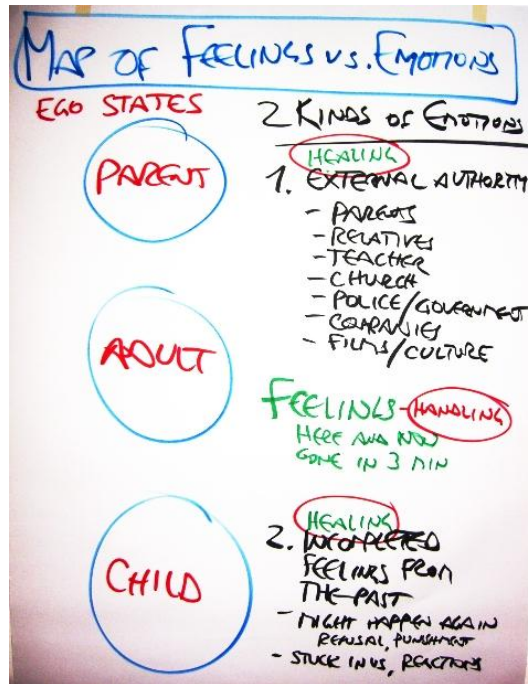 MAP OF FEELINGS VS. EMOTIONS
EGO STATES
PARENT
ADULT
CHILD
2 KINDS OF EMOTIONS
HEALING
1. EXTERNAL AUTHORITY
- PARENTS
- RELATIVES
- TEACHER
- CHURCH
- POLICE/GOVERNMENT
- COMPANIES
- FILMS/CULTURE
FEELINGS - HANDLING
HERE AND NOW
GONE IN 3 MIN
HEALING
2. INCOMPLETED
FEELINGS FROM
THE PAST
- MIGHT HAPPEN AGAIN
REFUSAL, PUNISHMENT
- STUCK IN US, REACTIONS